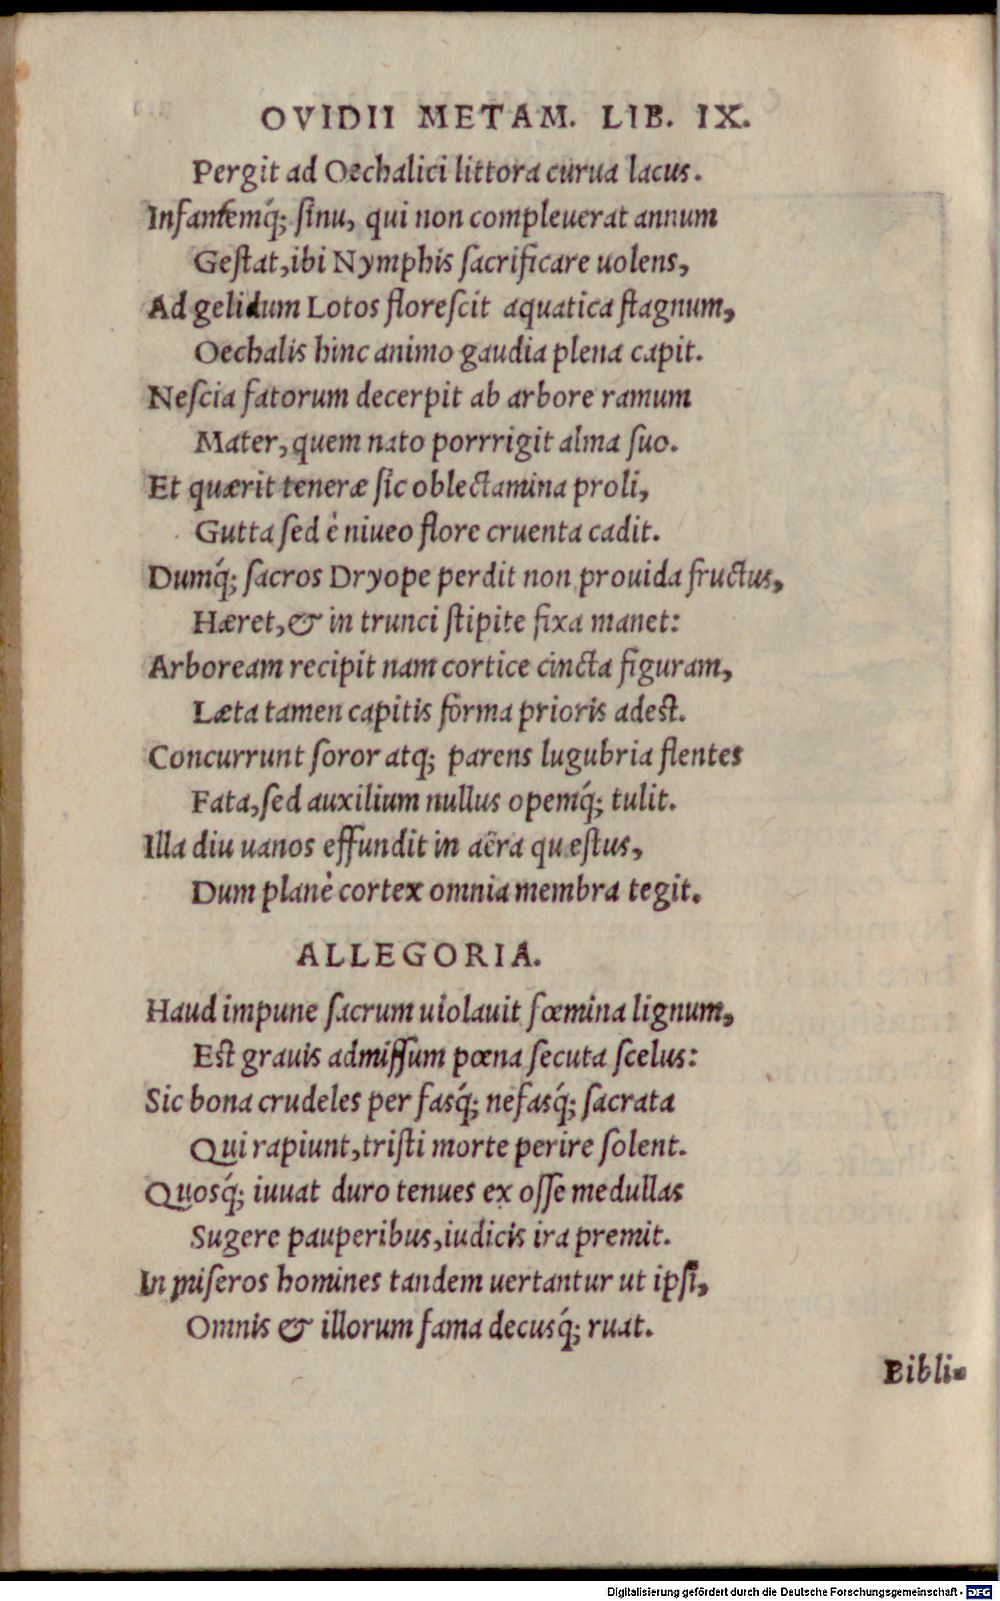 OVIDII METAM. LIB. IX.
Pergit ad Oechalici littora curua lacus.
Infantemq́; sinu, qui non compleuerat annum
Gestat, ibi Nymphis sacrificare uolens,
Ad gelidum Lotos florescit aquatica stagnum,
Oechalis hinc animo gaudia plena capit.
Nescia fatorum decerpit ab arbore ramum
Mater, quem nato porrrigit alma suo.
Et quærit teneræ sic oblectamina proli,
Gutta sed è niueo flore cruenta cadit.
Dumq́; sacros Dryope perdit non prouida fructus,
Hæret, & in trunci stipite fixa manet:
Arboream recipit nam cortice cincta figuram,
Læta tamen capitis forma prioris adest.
Concurrunt soror atq; parens lugubria flentes
Fata, sed auxilium nullus opemq́; tulit.
Illa diu uanos effundit in aëra quæstus,
Dum planè cortex omnia membra tegit.
ALLEGORIA.
Haud impune sacrum uiolauit fœmina lignum,
Est grauis admissum pœna secuta scelus:
Sic bona crudeles per fasq́; nefasq́; sacrata
Qui rapiunt, tristi morte perire solent.
Quosq́; iuuat duro tenues ex osse medullas
Sugere pauperibus, iudicis ira premit.
In miseros homines tandem uertantur ut ipsi,
Omnis & illorum fama decusq́; ruat.
Bibli-
Digitalisierung gefördert durch die Deutsche Forschungsgemeinschaft - DFG